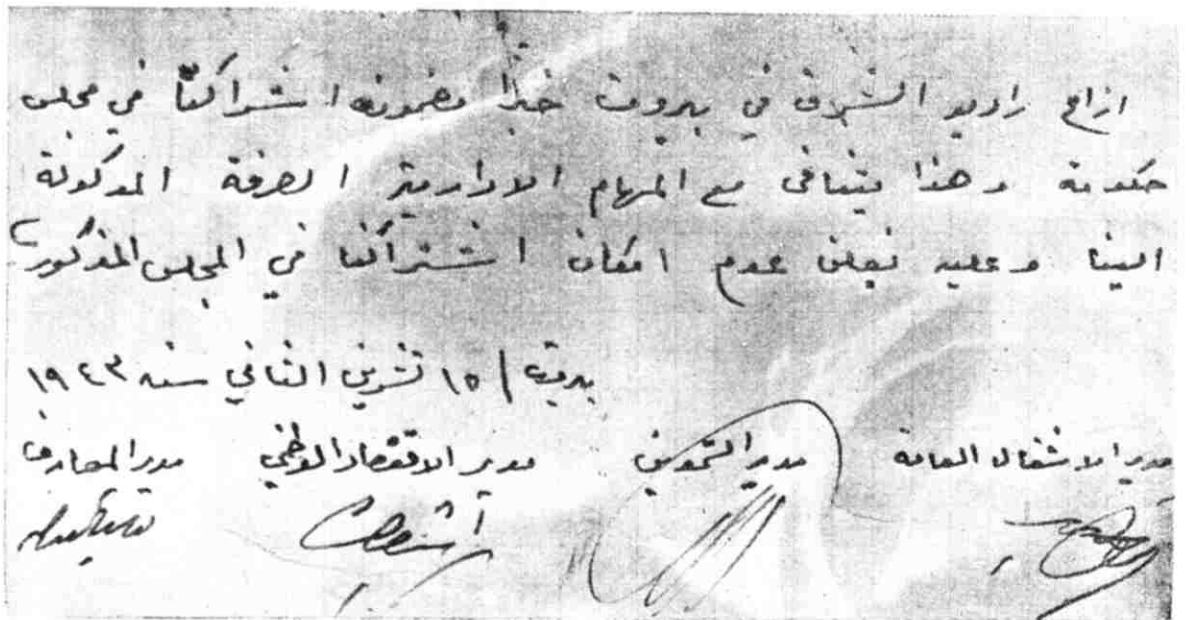 اذاع راديو الشرق في بيروت خبراً مضمونه اشتراكنا في مجلس
حكومة وهذا يتنافى مع المهام الادارية الصرفة الموكولة
الينا وعليه نعلن عدم امكان اشتراكنا في المجلس المذكور
بيروت / ١٥ تشرين الثاني سنة ١٩٤٣
مدير الاشغال العامة مدير التموين مدير الاقتصاد الوطني مدير المعارف